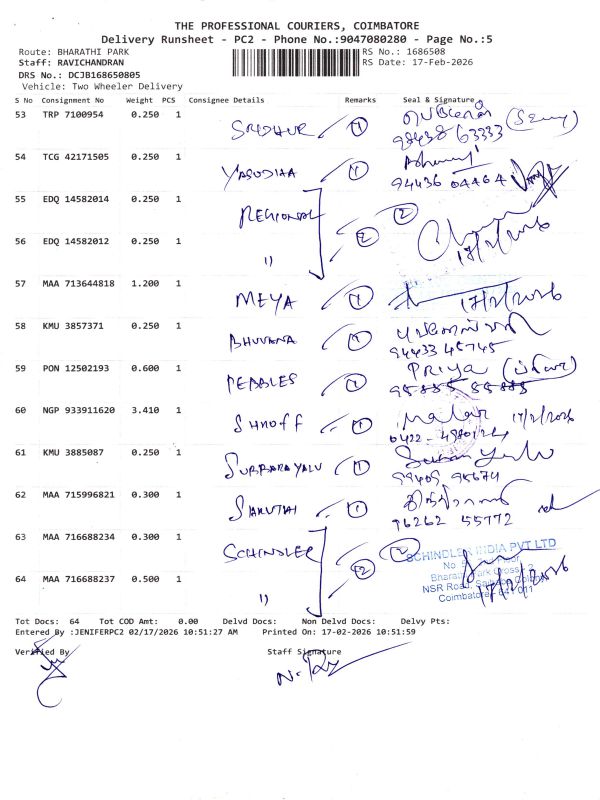 THE PROFESSIONAL COURIERS, COIMBATORE
Delivery Runsheet - PC2 - Phone No.:9047080280 - Page No.:5
Route: BHARATHI PARK RS No.: 1686508
Staff: RAVICHANDRAN RS Date: 17-Feb-2026
DRS No.: DCJB168650805
Vehicle: Two Wheeler Delivery
S No Consignment No Weight PCS Consignee Details Remarks Seal & Signature
53 TRP 7100954 0.250 1 SRIDHUR 1
98438 63333
54 TCG 42171505 0.250 1 YASODHA 1
94436 04464
55 EDQ 14582014 0.250 1 REGIONAL 2 2
56 EDQ 14582012 0.250 1 11 17/2/2026
57 MAA 713644818 1.200 1 MEYA 1 17/2/2026
58 KMU 3857371 0.250 1 BHUVANA 1
94433 45745
59 PON 12502193 0.600 1 PEBBLES 1 PRIYA
95885 85885
60 NGP 933911620 3.410 1 SHROFF 1 Malar 17/2/2026
61 KMU 3885087 0.250 1 SUBBARAYALU 1
99409 95674
62 MAA 715996821 0.300 1 SAKUTHI 1
96262 55772
63 MAA 716688234 0.300 1 SCHINDLER 2 2
SCHINDLER INDIA PVT LTD
64 MAA 716688237 0.500 1 11
Coimbatore - 641 011
17/2/2026
Tot Docs: 64 Tot COD Amt: 0.00 Delvd Docs: Non Delvd Docs: Delvy Pts:
Entered By :JENIFERPC2 02/17/2026 10:51:27 AM Printed On: 17-02-2026 10:51:59
Verified By Staff Signature